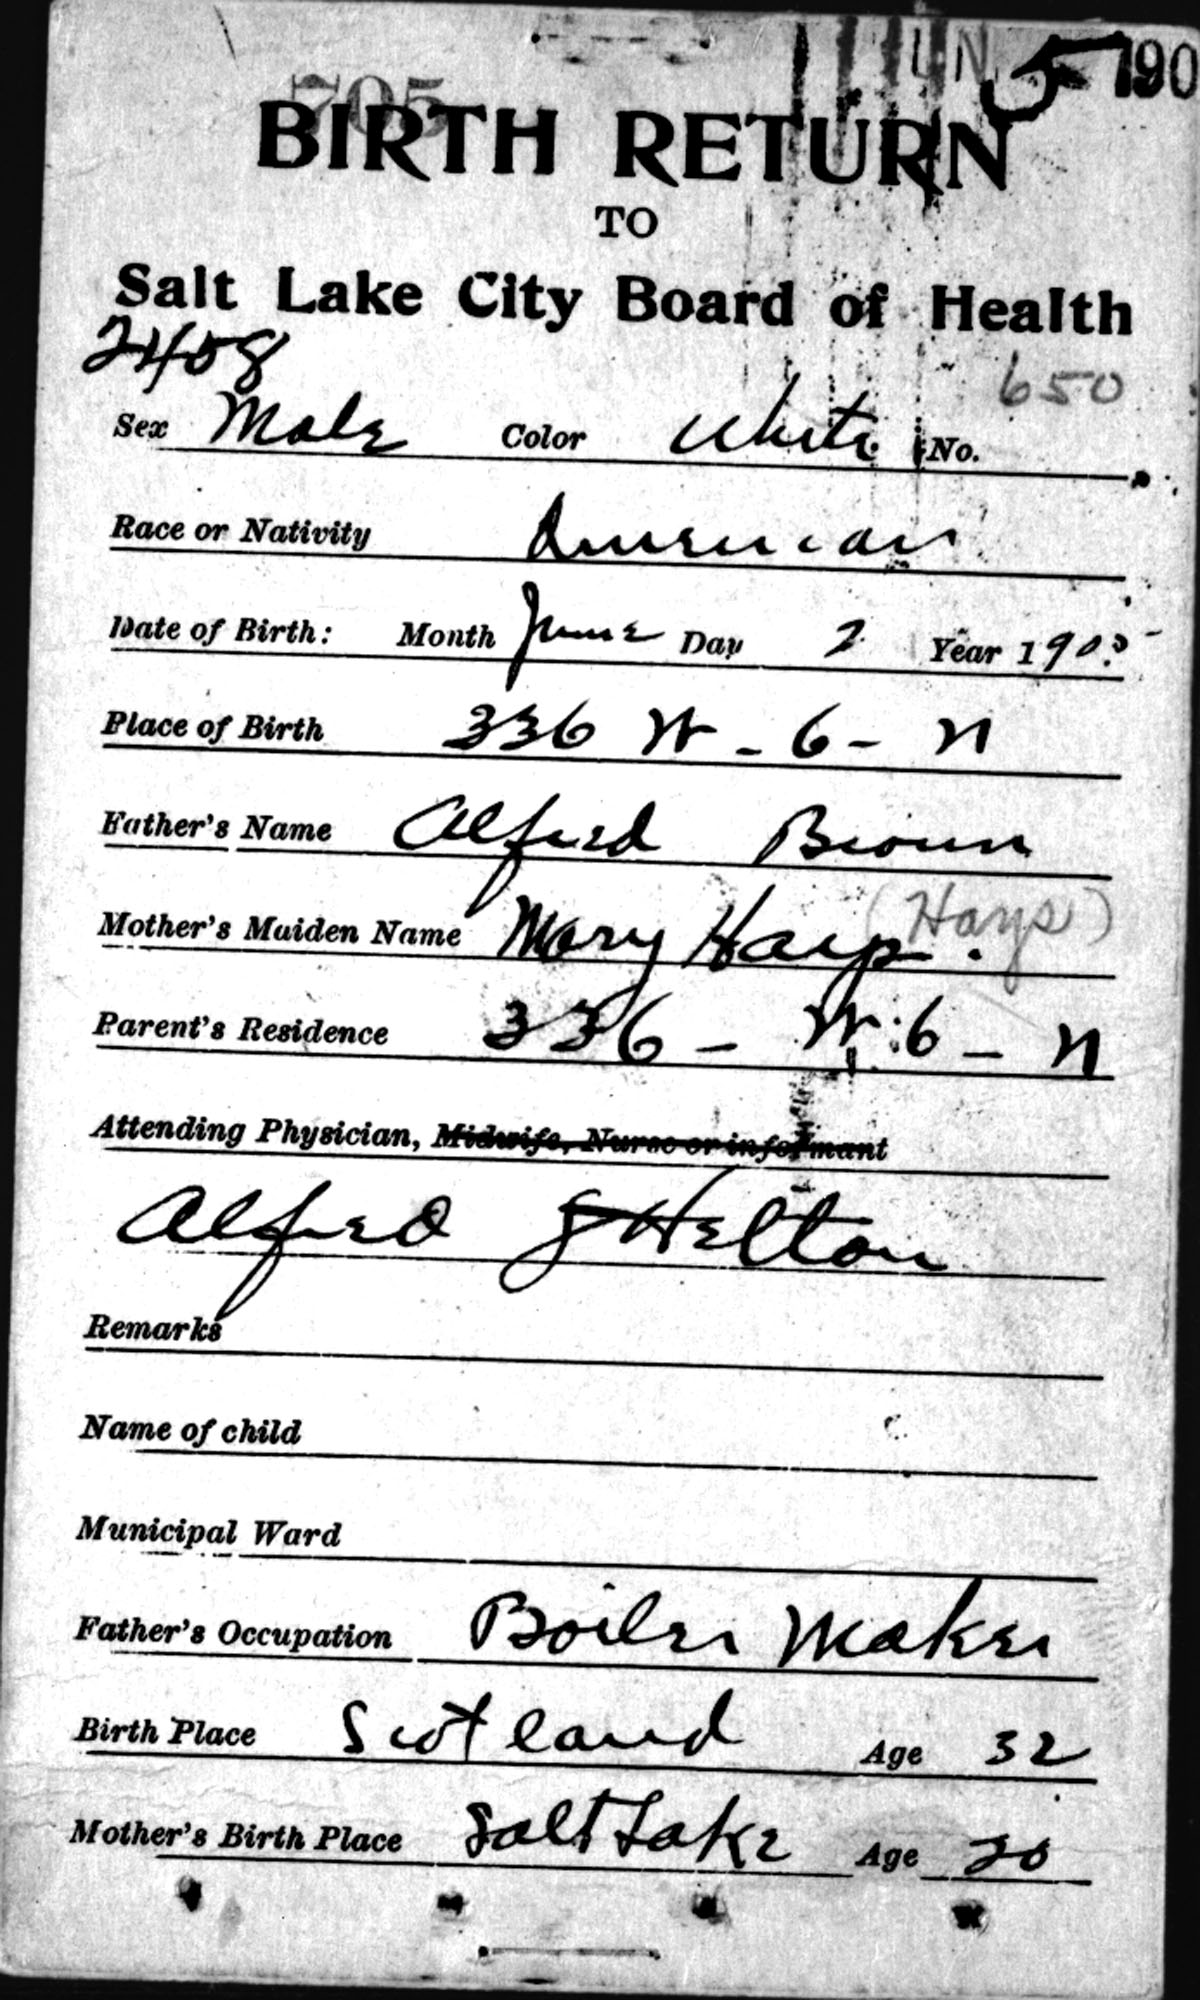 705
5 190
BIRTH RETURN
TO
Salt Lake City Board of Health
2408
650
Sex Male Color White No.
Race or Nativity American
Date of Birth: Month June Day 2 Year 1905
Place of Birth 336 W - 6 - N
Father's Name Alfred Brown
(Hays)
Mother's Maiden Name Mary Hays.
Parent's Residence 336 - W. 6 - N
Attending Physician, Midwife, Nurse or informant
Alfred Helton
Remarks
Name of child
Municipal Ward
Father's Occupation Boiler Maker
Birth Place Scotland Age 32
Mother's Birth Place Salt Lake Age 20